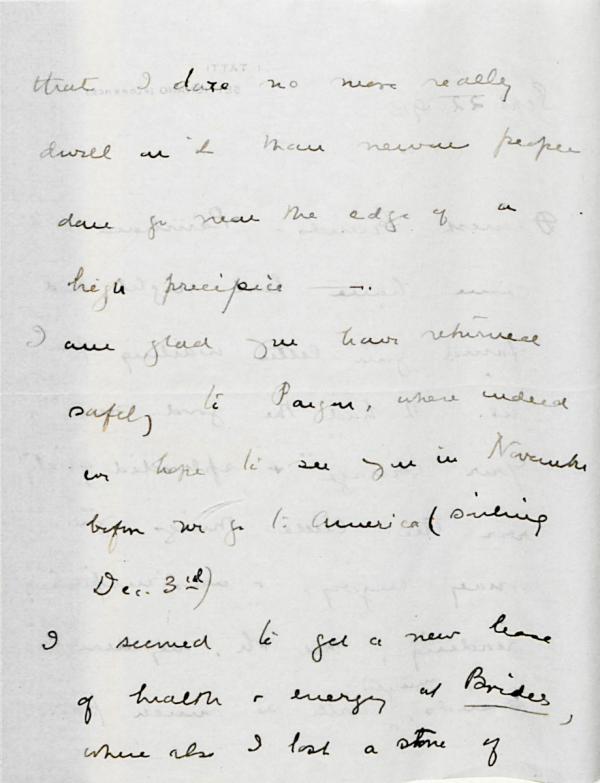 that I dare no more really
dwell on it than nervous people
dare go near the edge of a
high precipice —.
I am glad you have returned
safely to Paigan, where indeed
we hope to see you in November
before we go to America (sailing
Dec. 3rd)
I seemed to get a new lease
of health & energy at Brides,
where also I lost a stone of